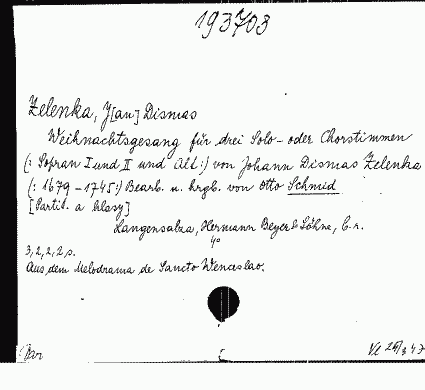 193703
Zelenka, J[an] Dismas
Weihnachtsgesang für drei Solo- oder Chorstimmen
(: Sopran I und II und Alt :) von Johann Dismas Zelenka
(: 1679 - 1745 :) Bearb. u. hrgb. von Otto Schmid
[Partit. a hlasy]
Langensalza, Hermann Beyer & Söhne, b. r.
4°
3, 2, 2, 2 s.
Aus dem Melodrama de Sancto Wenceslao.